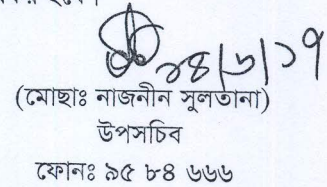 ১৪/৬/১৭
(মোছাঃ নাজনীন সুলতানা)
উপসচিব
ফোনঃ ৯৫ ৮৪ ৬৬৬